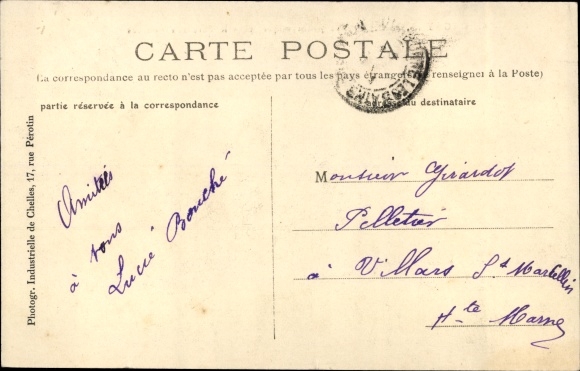 CARTE POSTALE
(La correspondance au recto n'est pas acceptée par tous les pays étrangers renseigner à la Poste)
partie réservée à la correspondance
adresse du destinataire
Photogr. Industrielle de Chelles, 17, rue Pérotin
Amitiés
à tous
Lucie Bouché
Monsieur Girardot
Pelletier
à Villars St Marcellin
Hte Marne